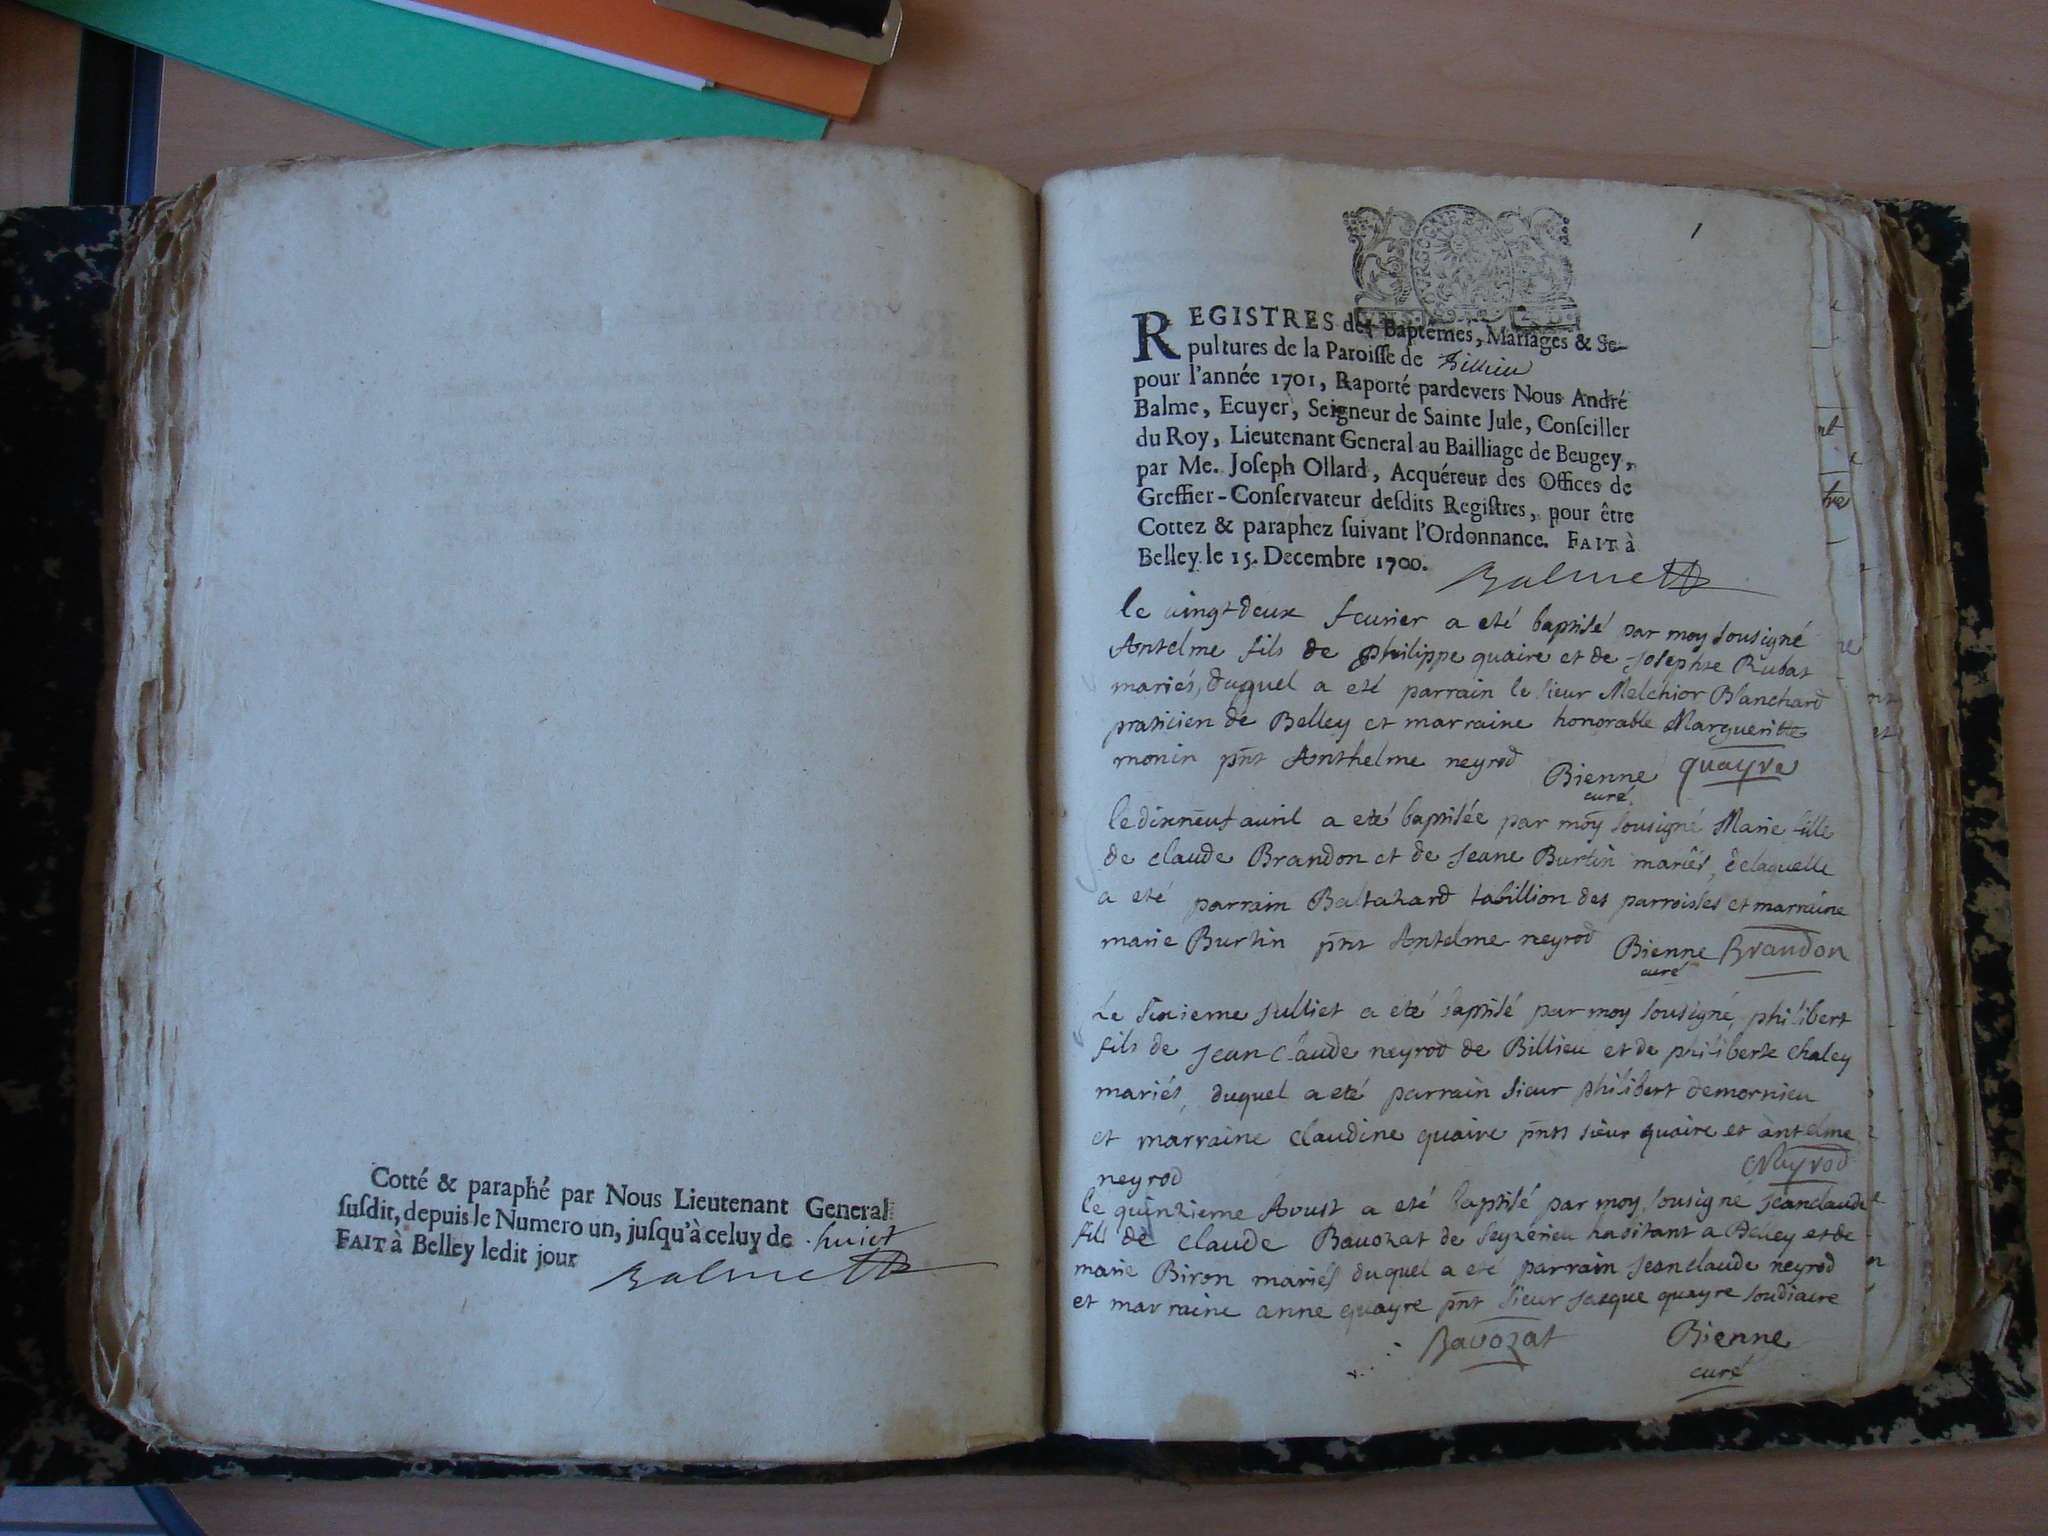 Cotté & paraphé par Nous Lieutenant General
susdit, depuis le Numero un, jusqu'à celuy de huict
FAIT à Belley ledit jour
Balme
1
REGISTRES des Baptêmes, Mariages & Se-
pultures de la Paroisse de Billieu
pour l'année 1701, Raporté pardevers Nous André
Balme, Ecuyer, Seigneur de Sainte Jule, Conseiller
du Roy, Lieutenant General au Bailliage de Beugey,
par Me. Joseph Ollard, Acquéreur des Offices de
Greffier-Conservateur desdits Registres, pour être
Cottez & paraphez suivant l'Ordonnance. FAIT à
Belley le 15. Decembre 1700.
Balme
le vingt deux feurier a eté baptisé par moy sousigné
Antelme fils de philippe quaire et de Josephte Rubat
mariés, duquel a eté parrain le sieur Melchior Blanchard
praticien de Belley et marraine honorable Margueritte
monin pnt Anthelme neyrod Bienne quayre
curé
le dixneuf auril a eté baptisée par moy sousigné Marie fille
de claude Brandon et de Jeane Burtin mariés, delaquelle
a eté parrain Baltahard tabillion des parroisses et marraine
marie Burtin pnt Antelme neyrod Bienne Brandon
curé
Le sixieme Julliet a eté baptisé par moy sousigné, philibert
fils de Jean Claude neyrod de Billieu et de philiberte Chaley
mariés, duquel a eté parrain sieur philibert demornieu
et marraine claudine quaire pnts sieur quaire et antelme
neyrod Neyrod
le quinzieme Aoust a eté baptisé par moy sousigne Jeanclaude
fils de claude Bauozat de seyzerieu habitant a Belley et de
marie Biron mariés duquel a eté parrain Jeanclaude neyrod
et marraine anne quayre pnt sieur Jacque quayre soudiacre
Bauozat Bienne
curé